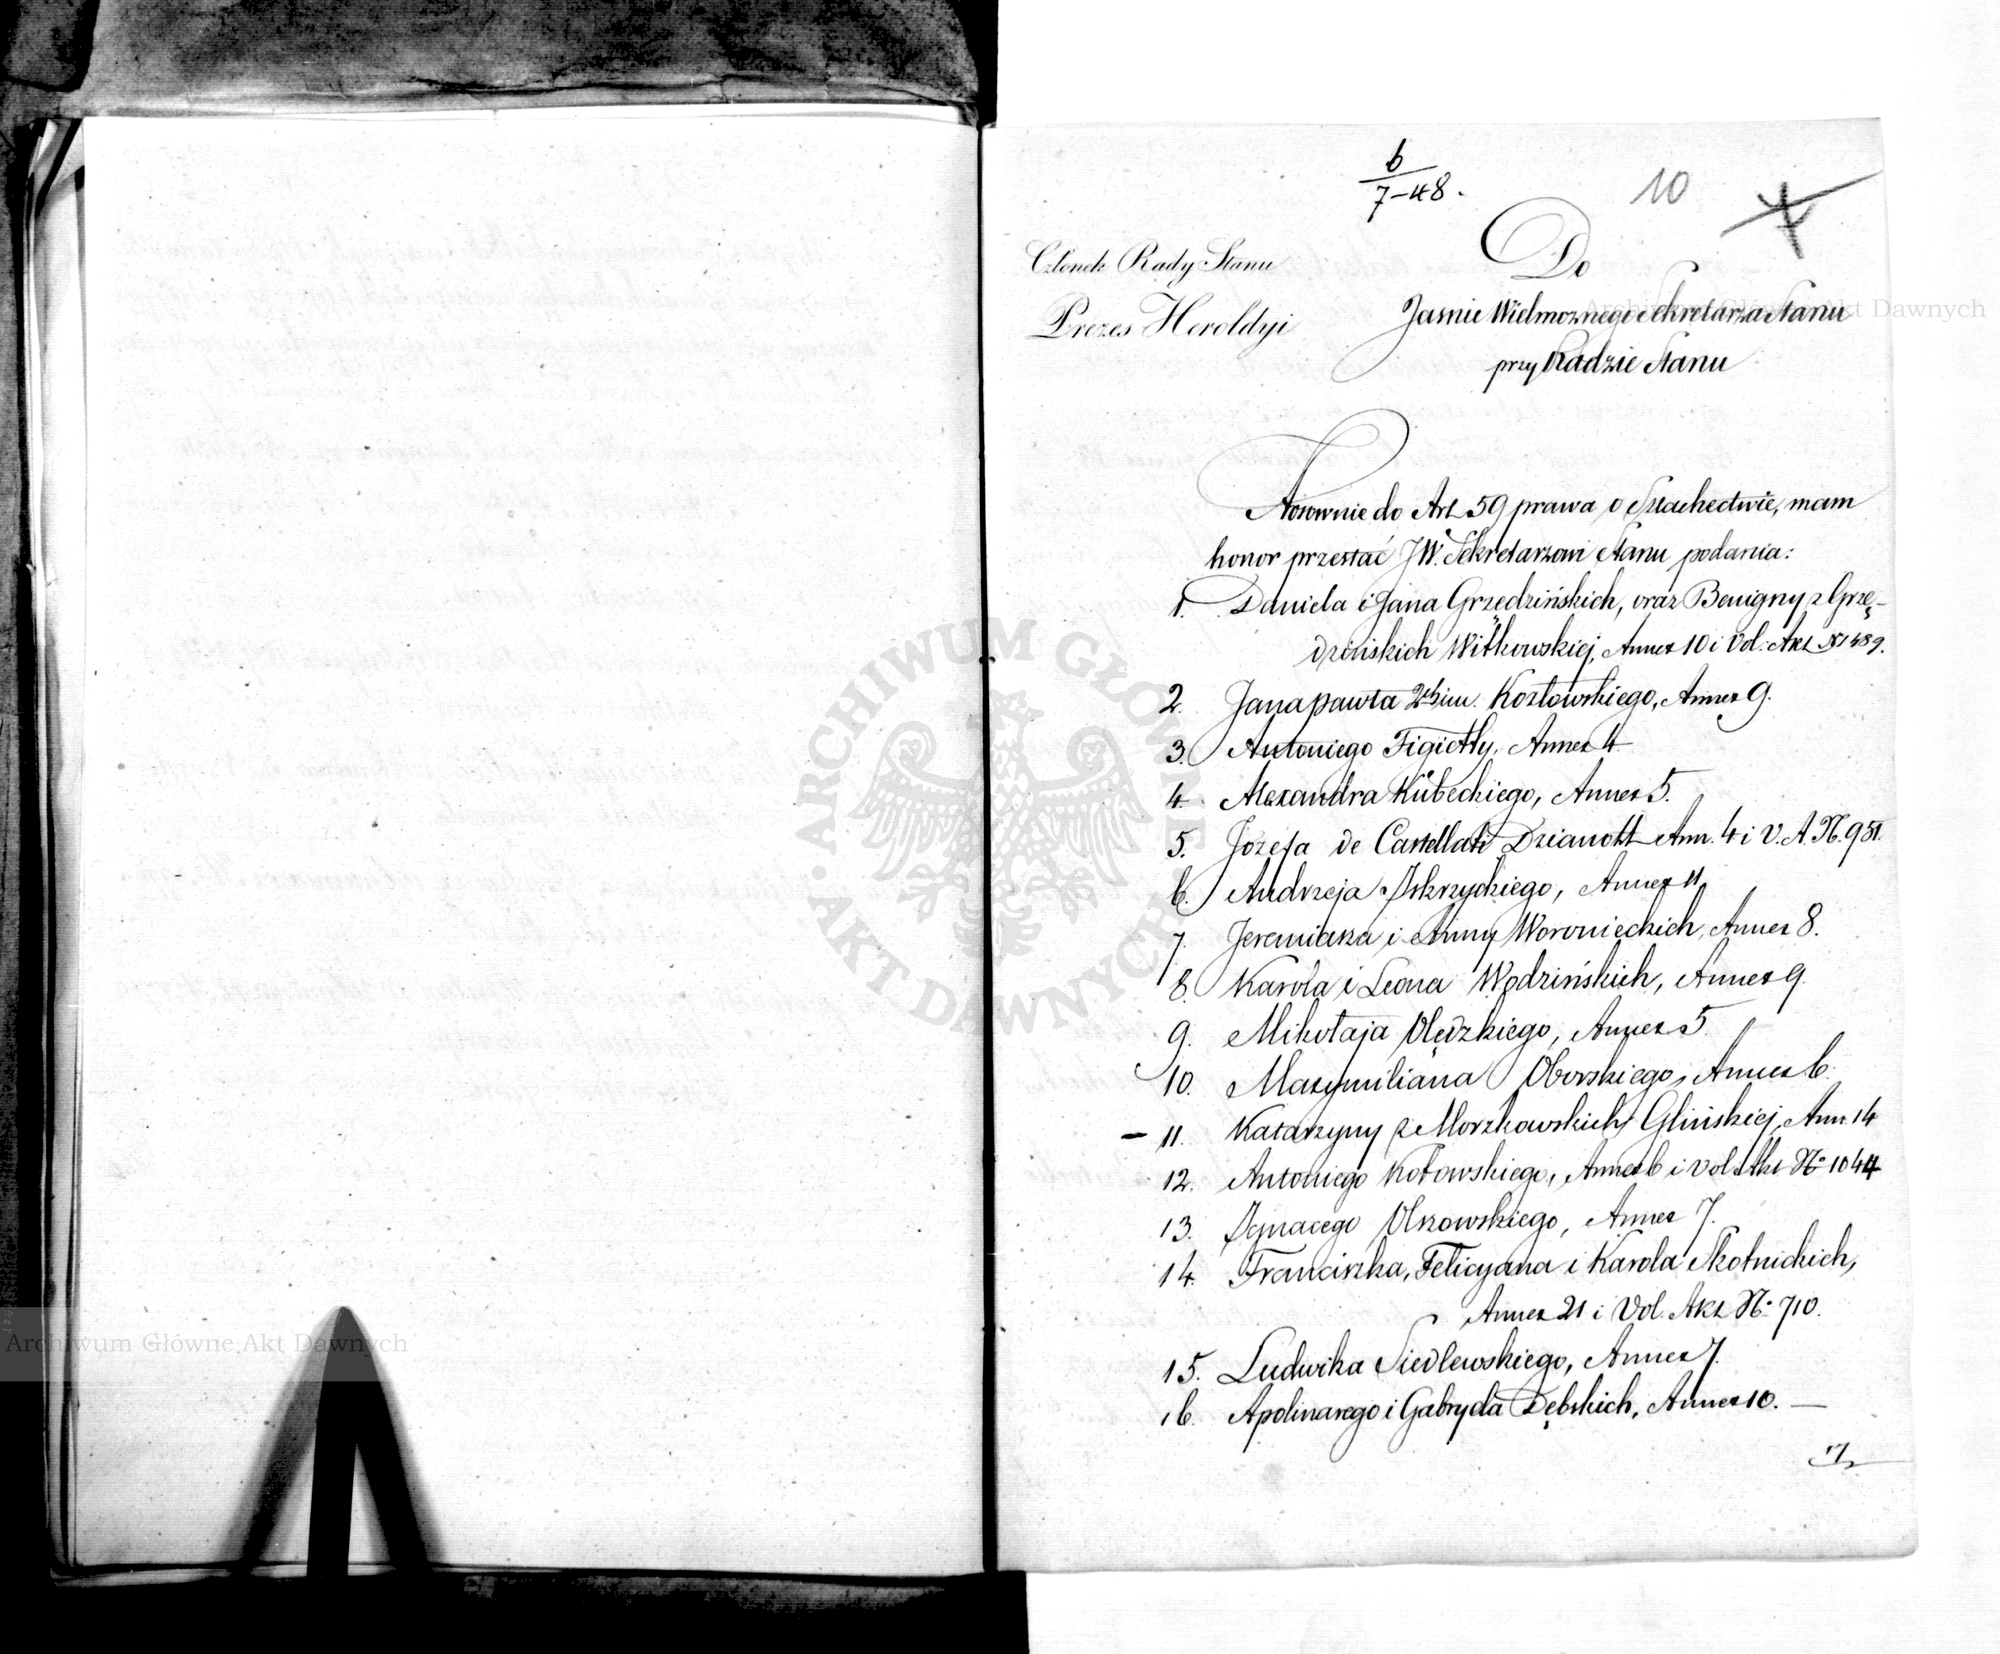 b
7-48.
10
Członek Rady Stanu
Prezes Heroldyi
Do
Jaśnie Wielmożnego Sekretarza Stanu
przy Radzie Stanu
Stosownie do Art 59 prawa o Szlachectwie, mam
honor przesłać JW. Sekretarzowi Stanu podania:
1. Daniela i Jana Grzędzińskich, oraz Benigny z Grzę-
dzińskich Witkowskiej, Annex 10 i Vol: Akt N 1489.
2. Jana pawła 2ch im. Kozłowskiego, Annex 9.
3. Antoniego Figietty, Annex 4
4. Alexandra Kubeckiego, Annex 5.
5. Józefa de Castellati Dzianott Ann. 4 i V. A. N. 951.
6. Andrzeja Iskrzyckiego, Annex 11
7. Jeremiasza i Anny Woronieckich, Annex 8.
8. Karola i Leona Wodzińskich, Annex 9.
9. Mikołaja Olędzkiego, Annex 5.
10. Maxymiliana Oborskiego, Annex 6.
11. Katarzyny z Morzkowskich Glińskiej, Ann. 14
12. Antoniego Kotowskiego, Annex 6 i vol. Akt No 1044
13. Ignacego Olszowskiego, Annex 7.
14. Franciszka, Felicyana i Karola Skotnickich,
Annex 21 i Vol. Akt No 710.
15. Ludwika Siedlewskiego, Annex 7.
16. Apolinarego i Gabryela Dębskich, Annex 10. —
ARCHIWUM GŁÓWNE
AKT DAWNYCH
Archiwum Główne Akt Dawnych
Archiwum Główne Akt Dawnych